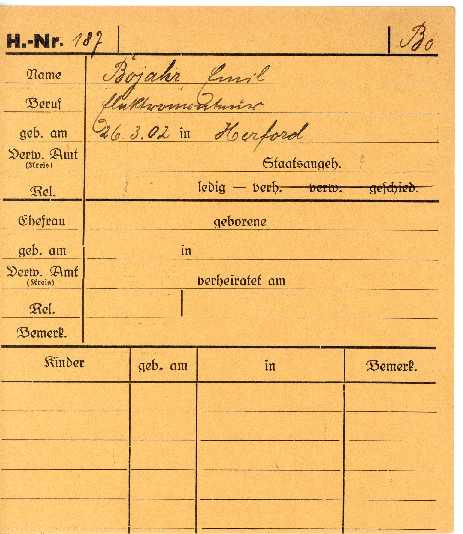 H.-Nr. 187 Bo
Name Bojahr Emil
Beruf Elektromonteur
geb. am 26.3.02 in Herford
Verw. Amt (Kreis) Staatsangeh.
Rel. ledig — verh. verw. geschied.
Ehefrau geborene
geb. am in
Verw. Amt (Kreis) verheiratet am
Rel.
Bemerk.
Kinder geb. am in Bemerk.